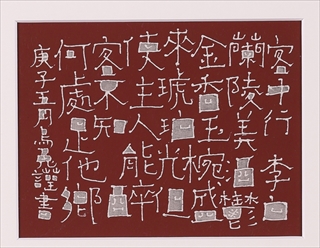 客中行 李白
蘭陵美酒鬱
金香玉椀盛
來琥珀光但
使主人能醉
客不知
何處是他鄉
庚子五月 書